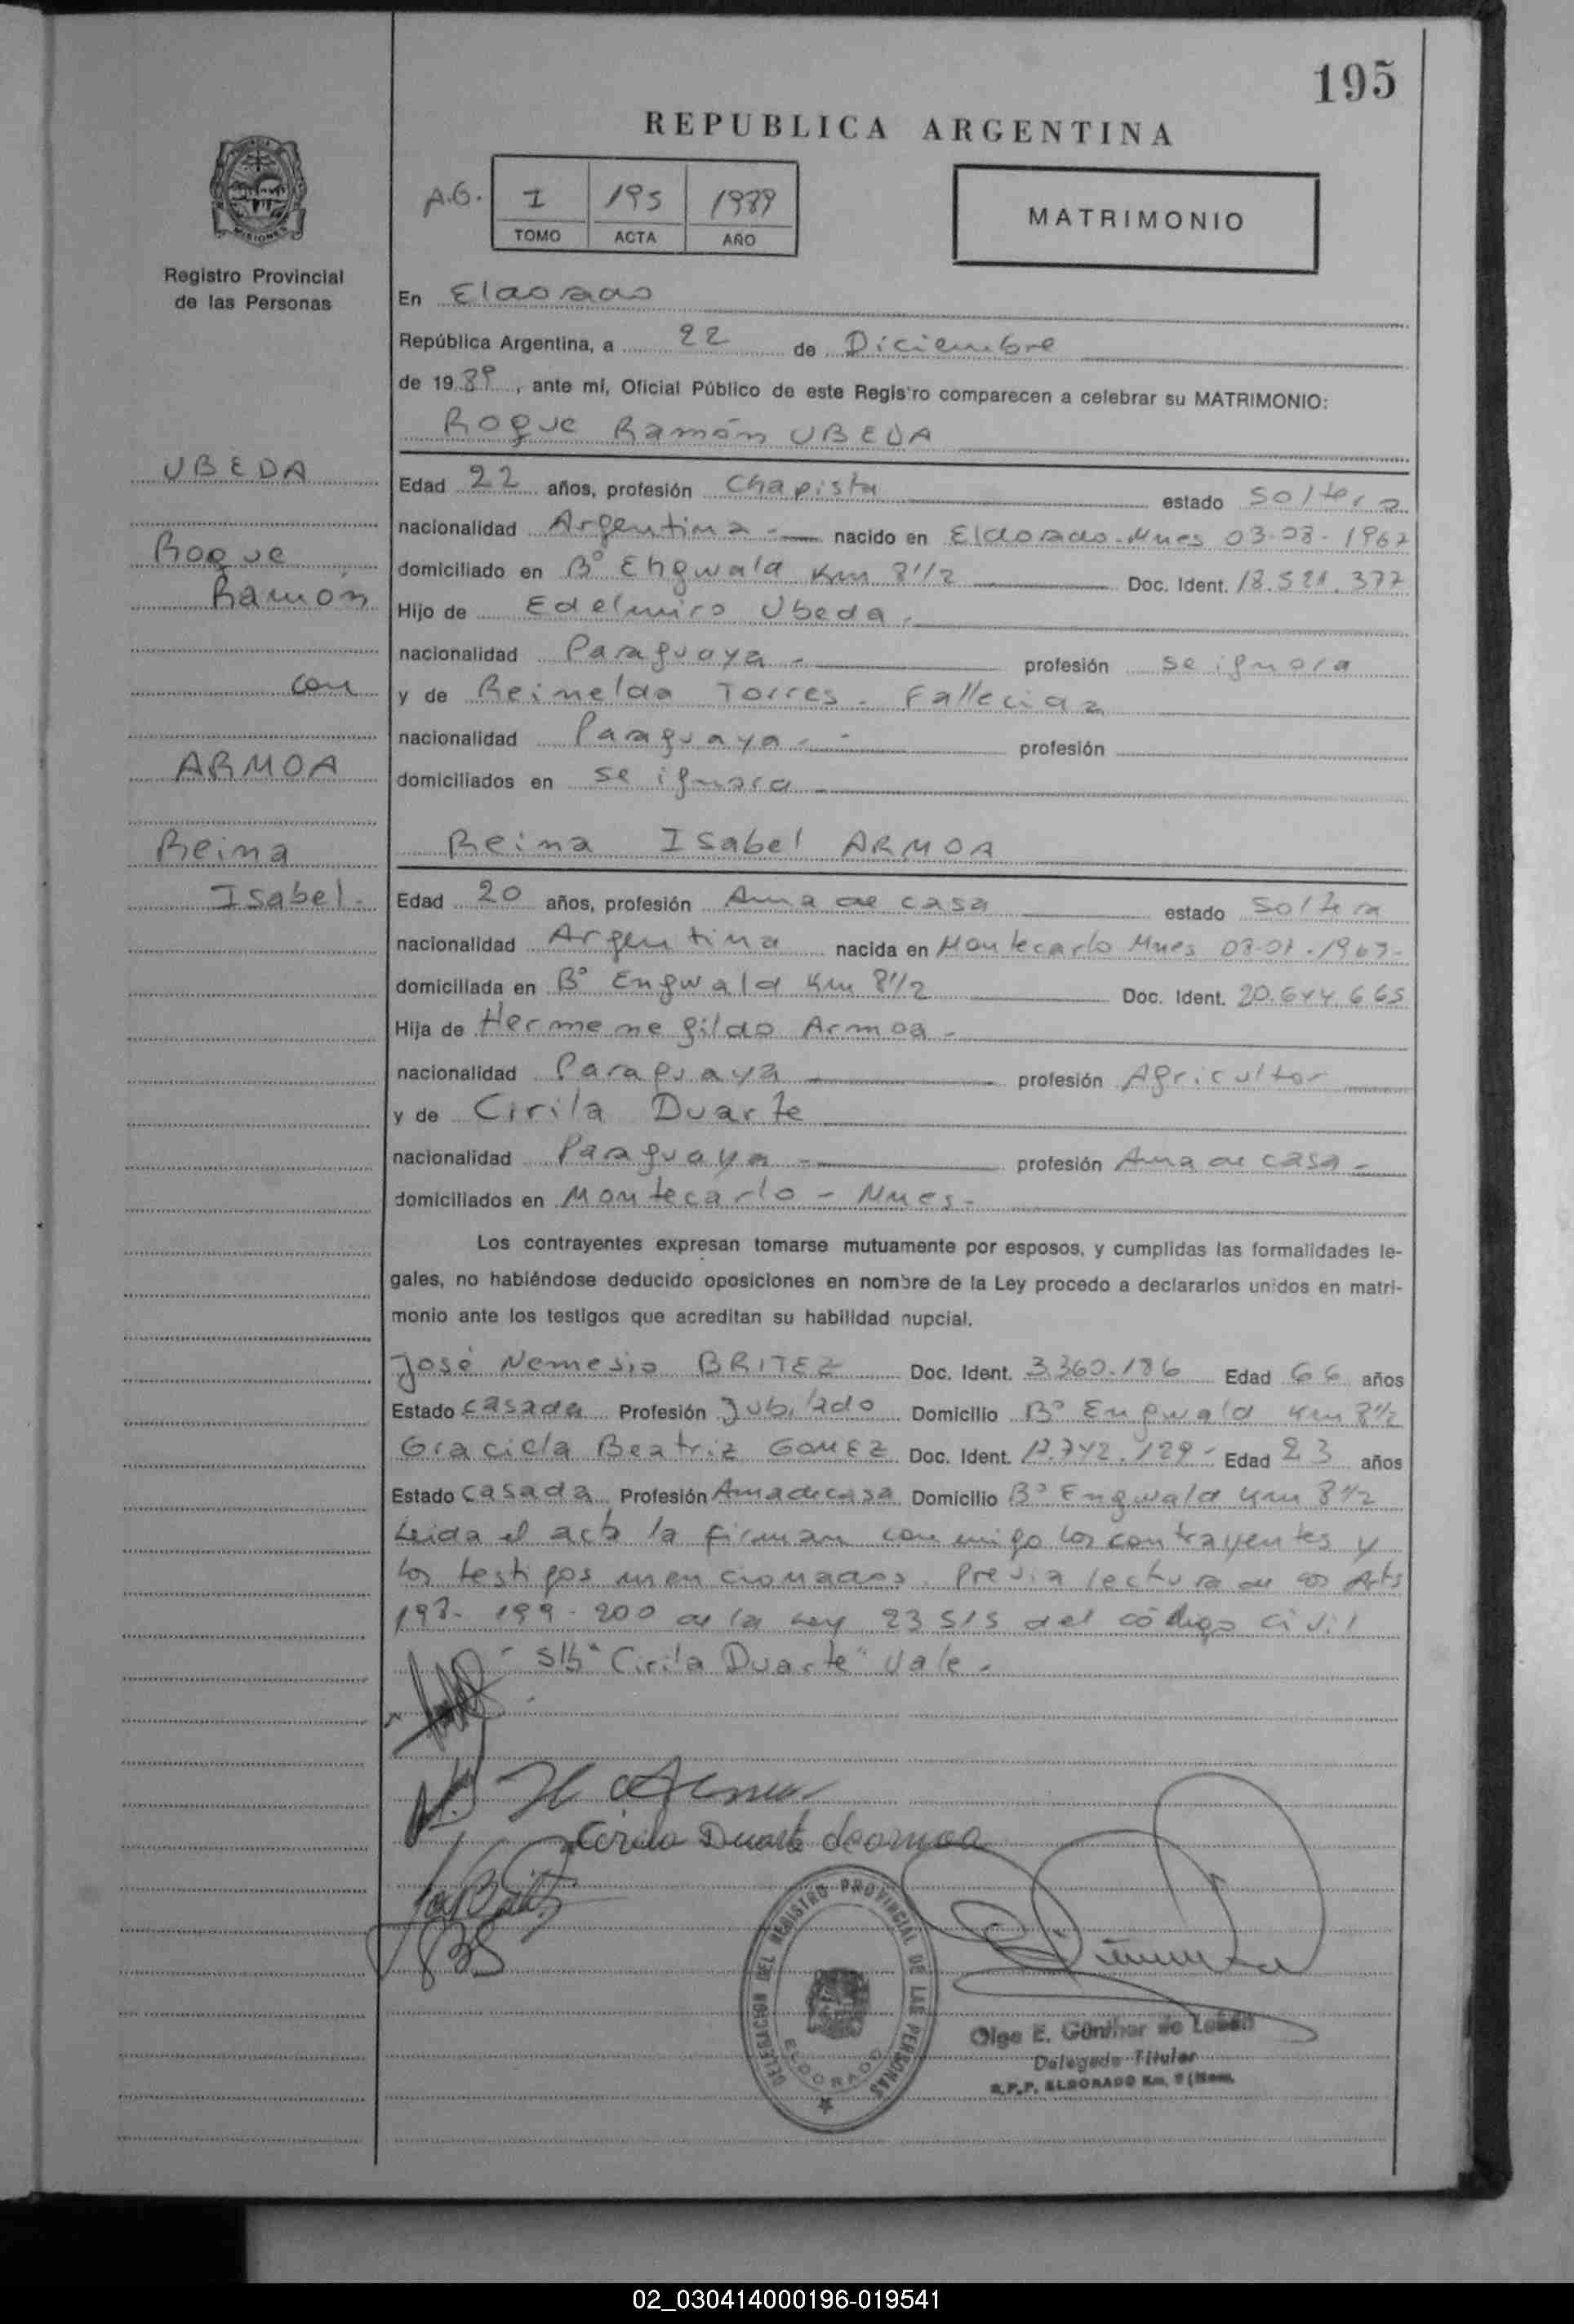 195
REPUBLICA ARGENTINA
A.G. I 195 1989
TOMO ACTA AÑO
MATRIMONIO
MISIONES
Registro Provincial
de las Personas
En Eldorado
República Argentina, a 22 de Diciembre
de 19 89, ante mí, Oficial Público de este Registro comparecen a celebrar su MATRIMONIO:
Roque Ramón UBEDA
UBEDA
Roque
Ramón
con
ARMOA
Reina
Isabel-
Edad 22 años, profesión Chapista estado soltero
nacionalidad Argentina - nacido en Eldorado-Mnes 03-08-1967
domiciliado en B° Engwald Km 8 1/2 Doc. Ident. 18.521.377
Hijo de Edelmiro Ubeda.
nacionalidad Paraguaya - profesión se ignora
y de Reinelda Torres - Fallecida
nacionalidad Paraguaya - - profesión
domiciliados en se ignora
Reina Isabel ARMOA
Edad 20 años, profesión Ama de casa estado soltera
nacionalidad Argentina nacida en Montecarlo Mnes 1969-
domiciliada en B° Engwald Km 8 1/2 Doc. Ident. 20.644.665
Hija de Hermenegildo Armoa -
nacionalidad Paraguaya profesión Agricultor
y de Cirila Duarte
nacionalidad Paraguaya - profesión Ama de casa -
domiciliados en Montecarlo - Mnes -
Los contrayentes expresan tomarse mutuamente por esposos, y cumplidas las formalidades le-
gales, no habiéndose deducido oposiciones en nombre de la Ley procedo a declararlos unidos en matri-
monio ante los testigos que acreditan su habilidad nupcial.
José Nemesio BRITEZ Doc. Ident. 3.360.186 Edad 66 años
Estado casado Profesión Jubilado Domicilio B° Engwald Km 8 1/2
Graciela Beatriz GOMEZ Doc. Ident. 17.742.129- Edad 23 años
Estado casada Profesión Ama de casa Domicilio B° Engwald Km 8 1/2
Leida el acta la firman conmigo los contrayentes y
los testigos mencionados. Previa lectura de los Arts
198- 199- 200 de la Ley 23515 del código civil
- S/b "Cirila Duarte" vale -
Cirila Duarte de armoa
DELEGACION DEL REGISTRO PROVINCIAL DE LAS PERSONAS
ELDORADO
Olga E. Günther de
Delegada Titular
R.P.P. ELDORADO Km. 9 (Mnes.
02_030414000196-019541